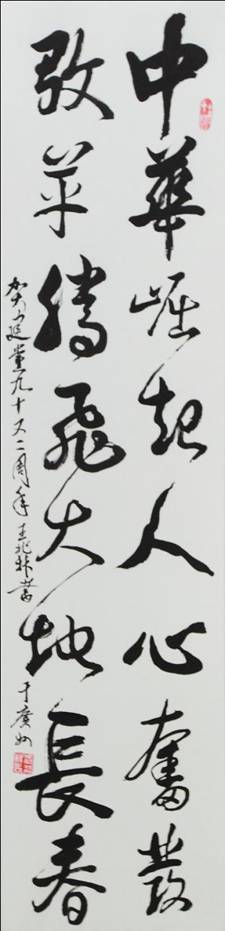 中華崛起人心奮發
改革騰飛大地長春
賀建黨九十又二周年王兆林書
于廣州